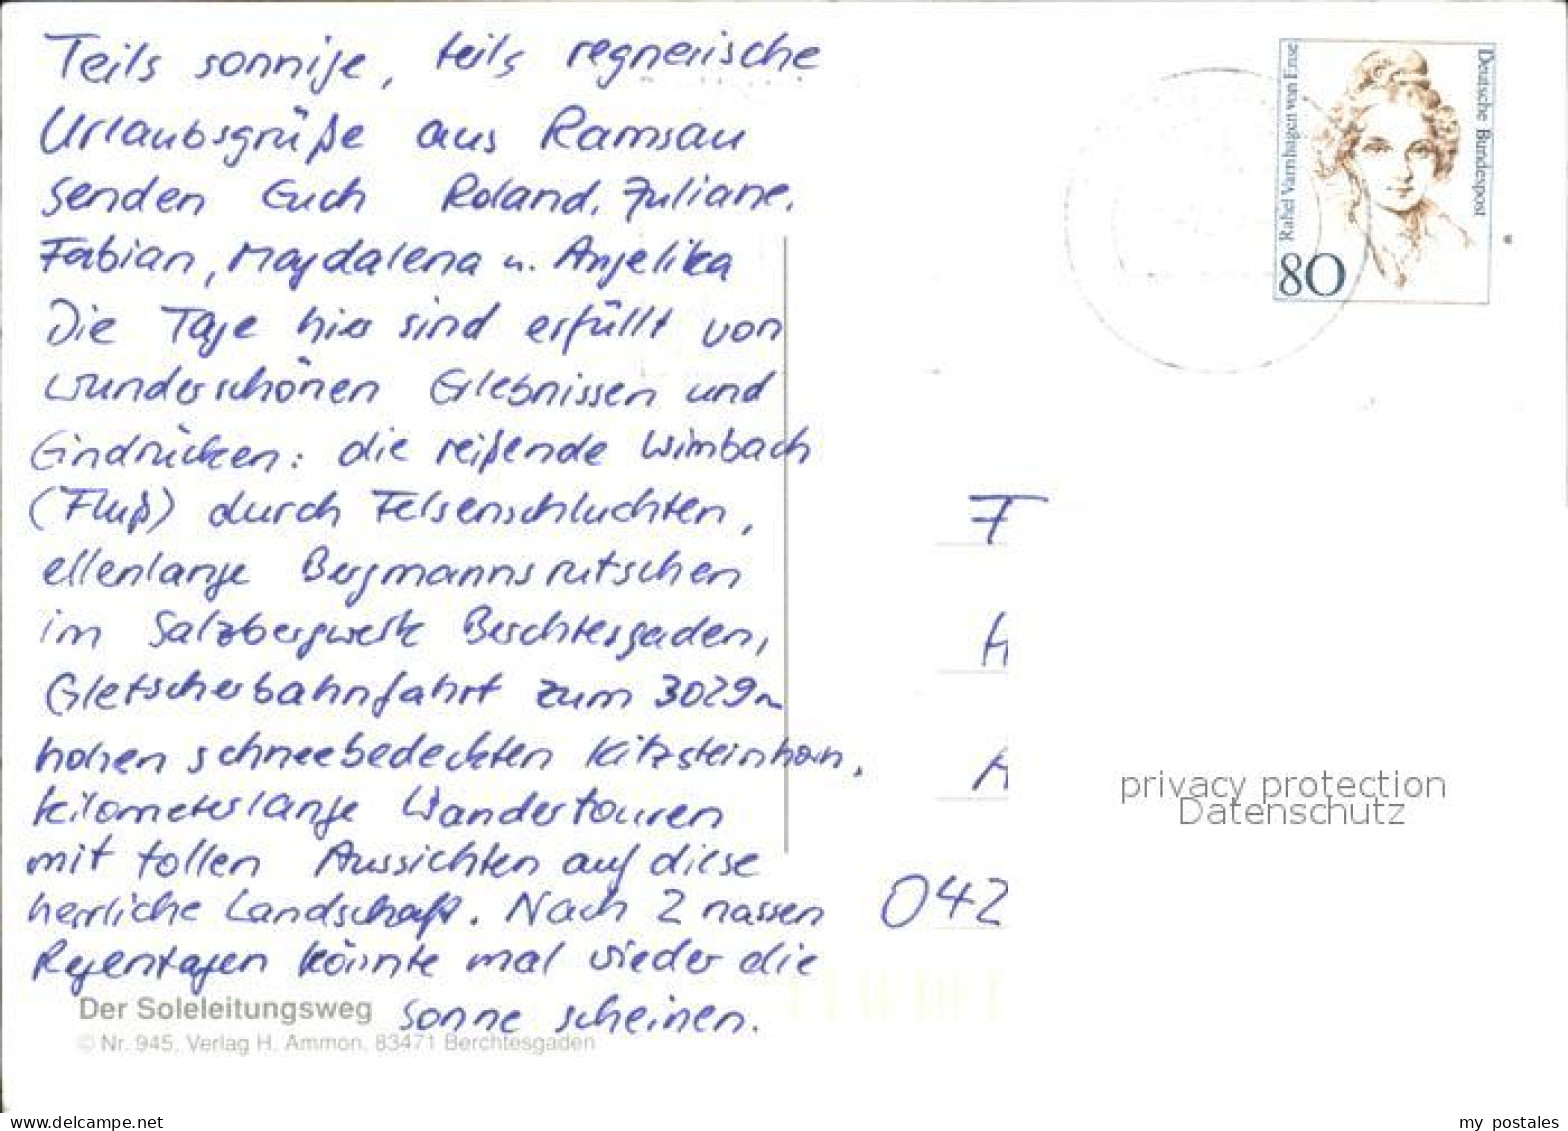 Teils sonnige, teils regnerische
Urlaubsgrüße aus Ramsau
senden Euch Roland, Juliane,
Fabian, Magdalena u. Angelika
Die Tage hier sind erfüllt von
wunderschönen Erlebnissen und
Eindrücken: die reißende Wimbach
(Fluß) durch Felsenschluchten,
ellenlange Bergmannsrutschen
im Salzbergwerk Berchtesgaden,
Gletscherbahnfahrt zum 3029m
hohen schneebedeckten Kitzsteinhorn,
kilometerlange Wandertouren
mit tollen Aussichten auf diese
herrliche Landschaft. Nach 2 nassen
Regentagen könnte mal wieder die
sonne scheinen.
Der Soleleitungsweg
© Nr. 945, Verlag H. Ammon, 83471 Berchtesgaden
Rahel Varnhagen von Ense
Deutsche Bundespost
80
F
H
A
042
privacy protection
Datenschutz
www.delcampe.net
my_postales